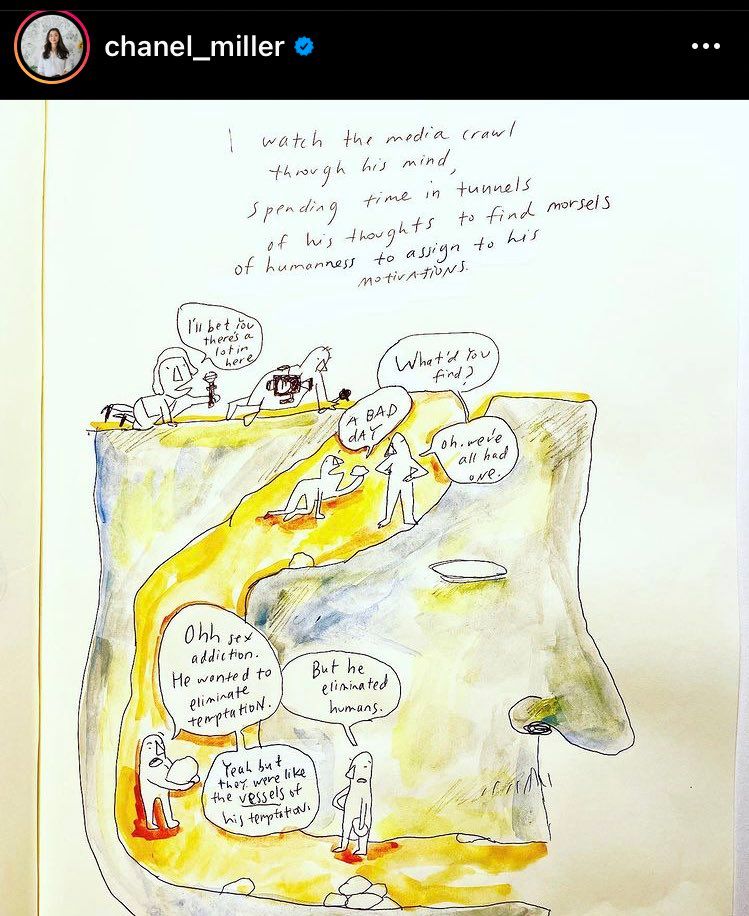 chanel_miller
I watch the media crawl
through his mind,
spending time in tunnels
of his thoughts to find morsels
of humanness to assign to his
motivations.
I'll bet you
there's a
lot in
here
What'd you
find?
A BAD
dAY.
Oh. we've
all had
one.
Ohh sex
addiction.
He wanted to
eliminate
temptation.
But he
eliminated
humans.
Yeah but
they were like
the vessels of
his temptation.